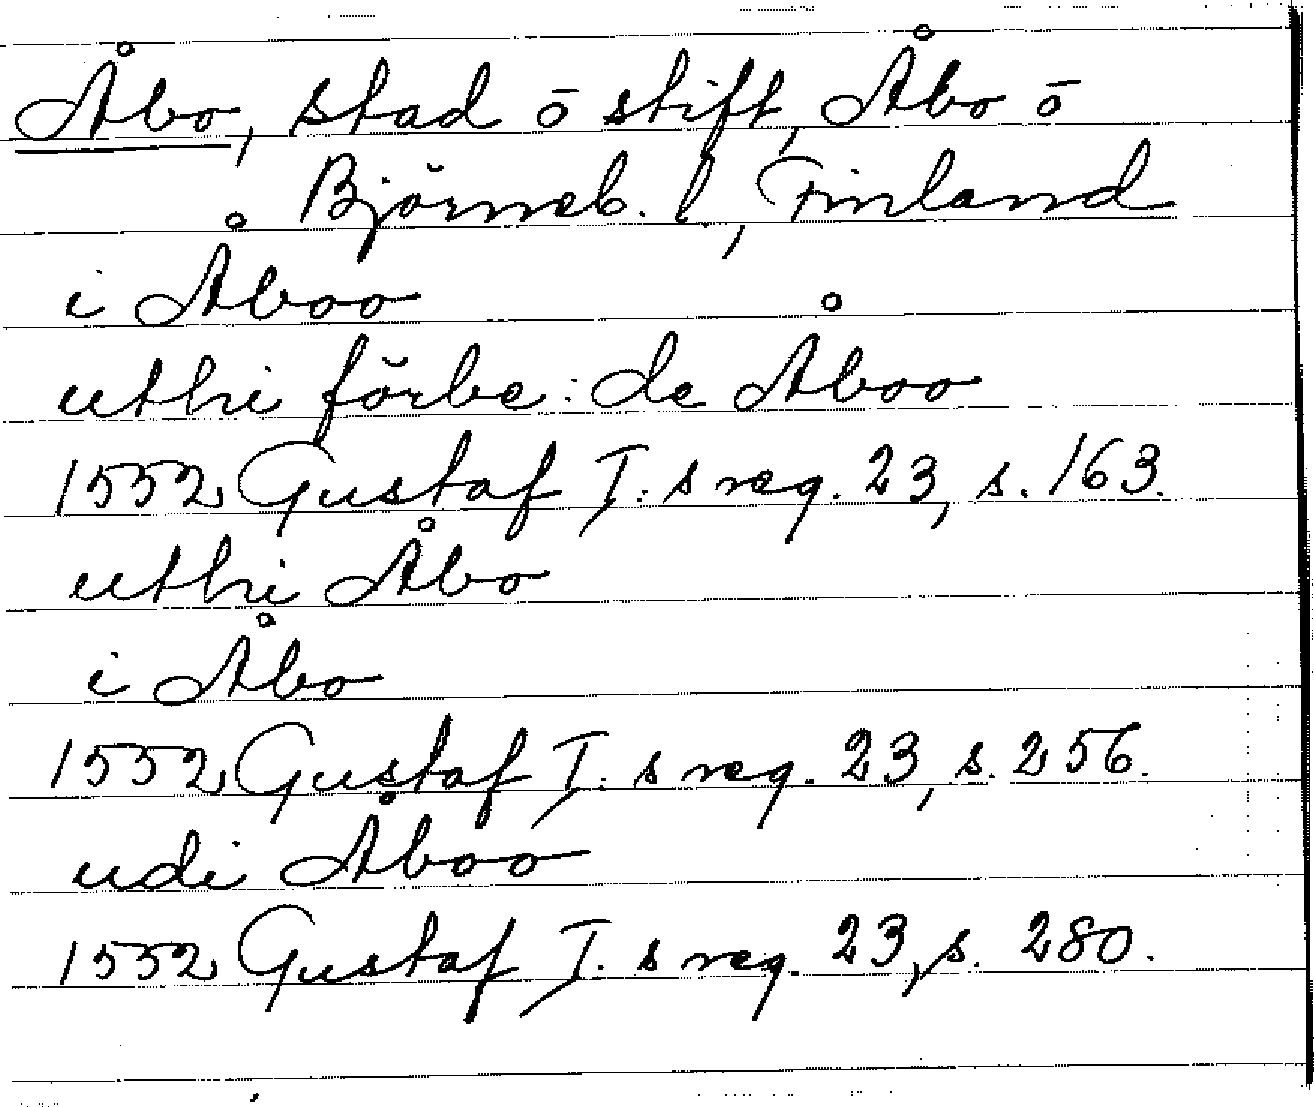 Åbo, stad ō stift, Åbo ō
Björneb. l, Finland
i Åboo
uthi förbe: de Åboo
1552 Gustaf I: s reg. 23, s. 163.
uthi Åbo
i Åbo
1552 Gustaf I: s reg. 23, s. 256.
udi Åboo
1552 Gustaf I: s reg. 23, s. 280.